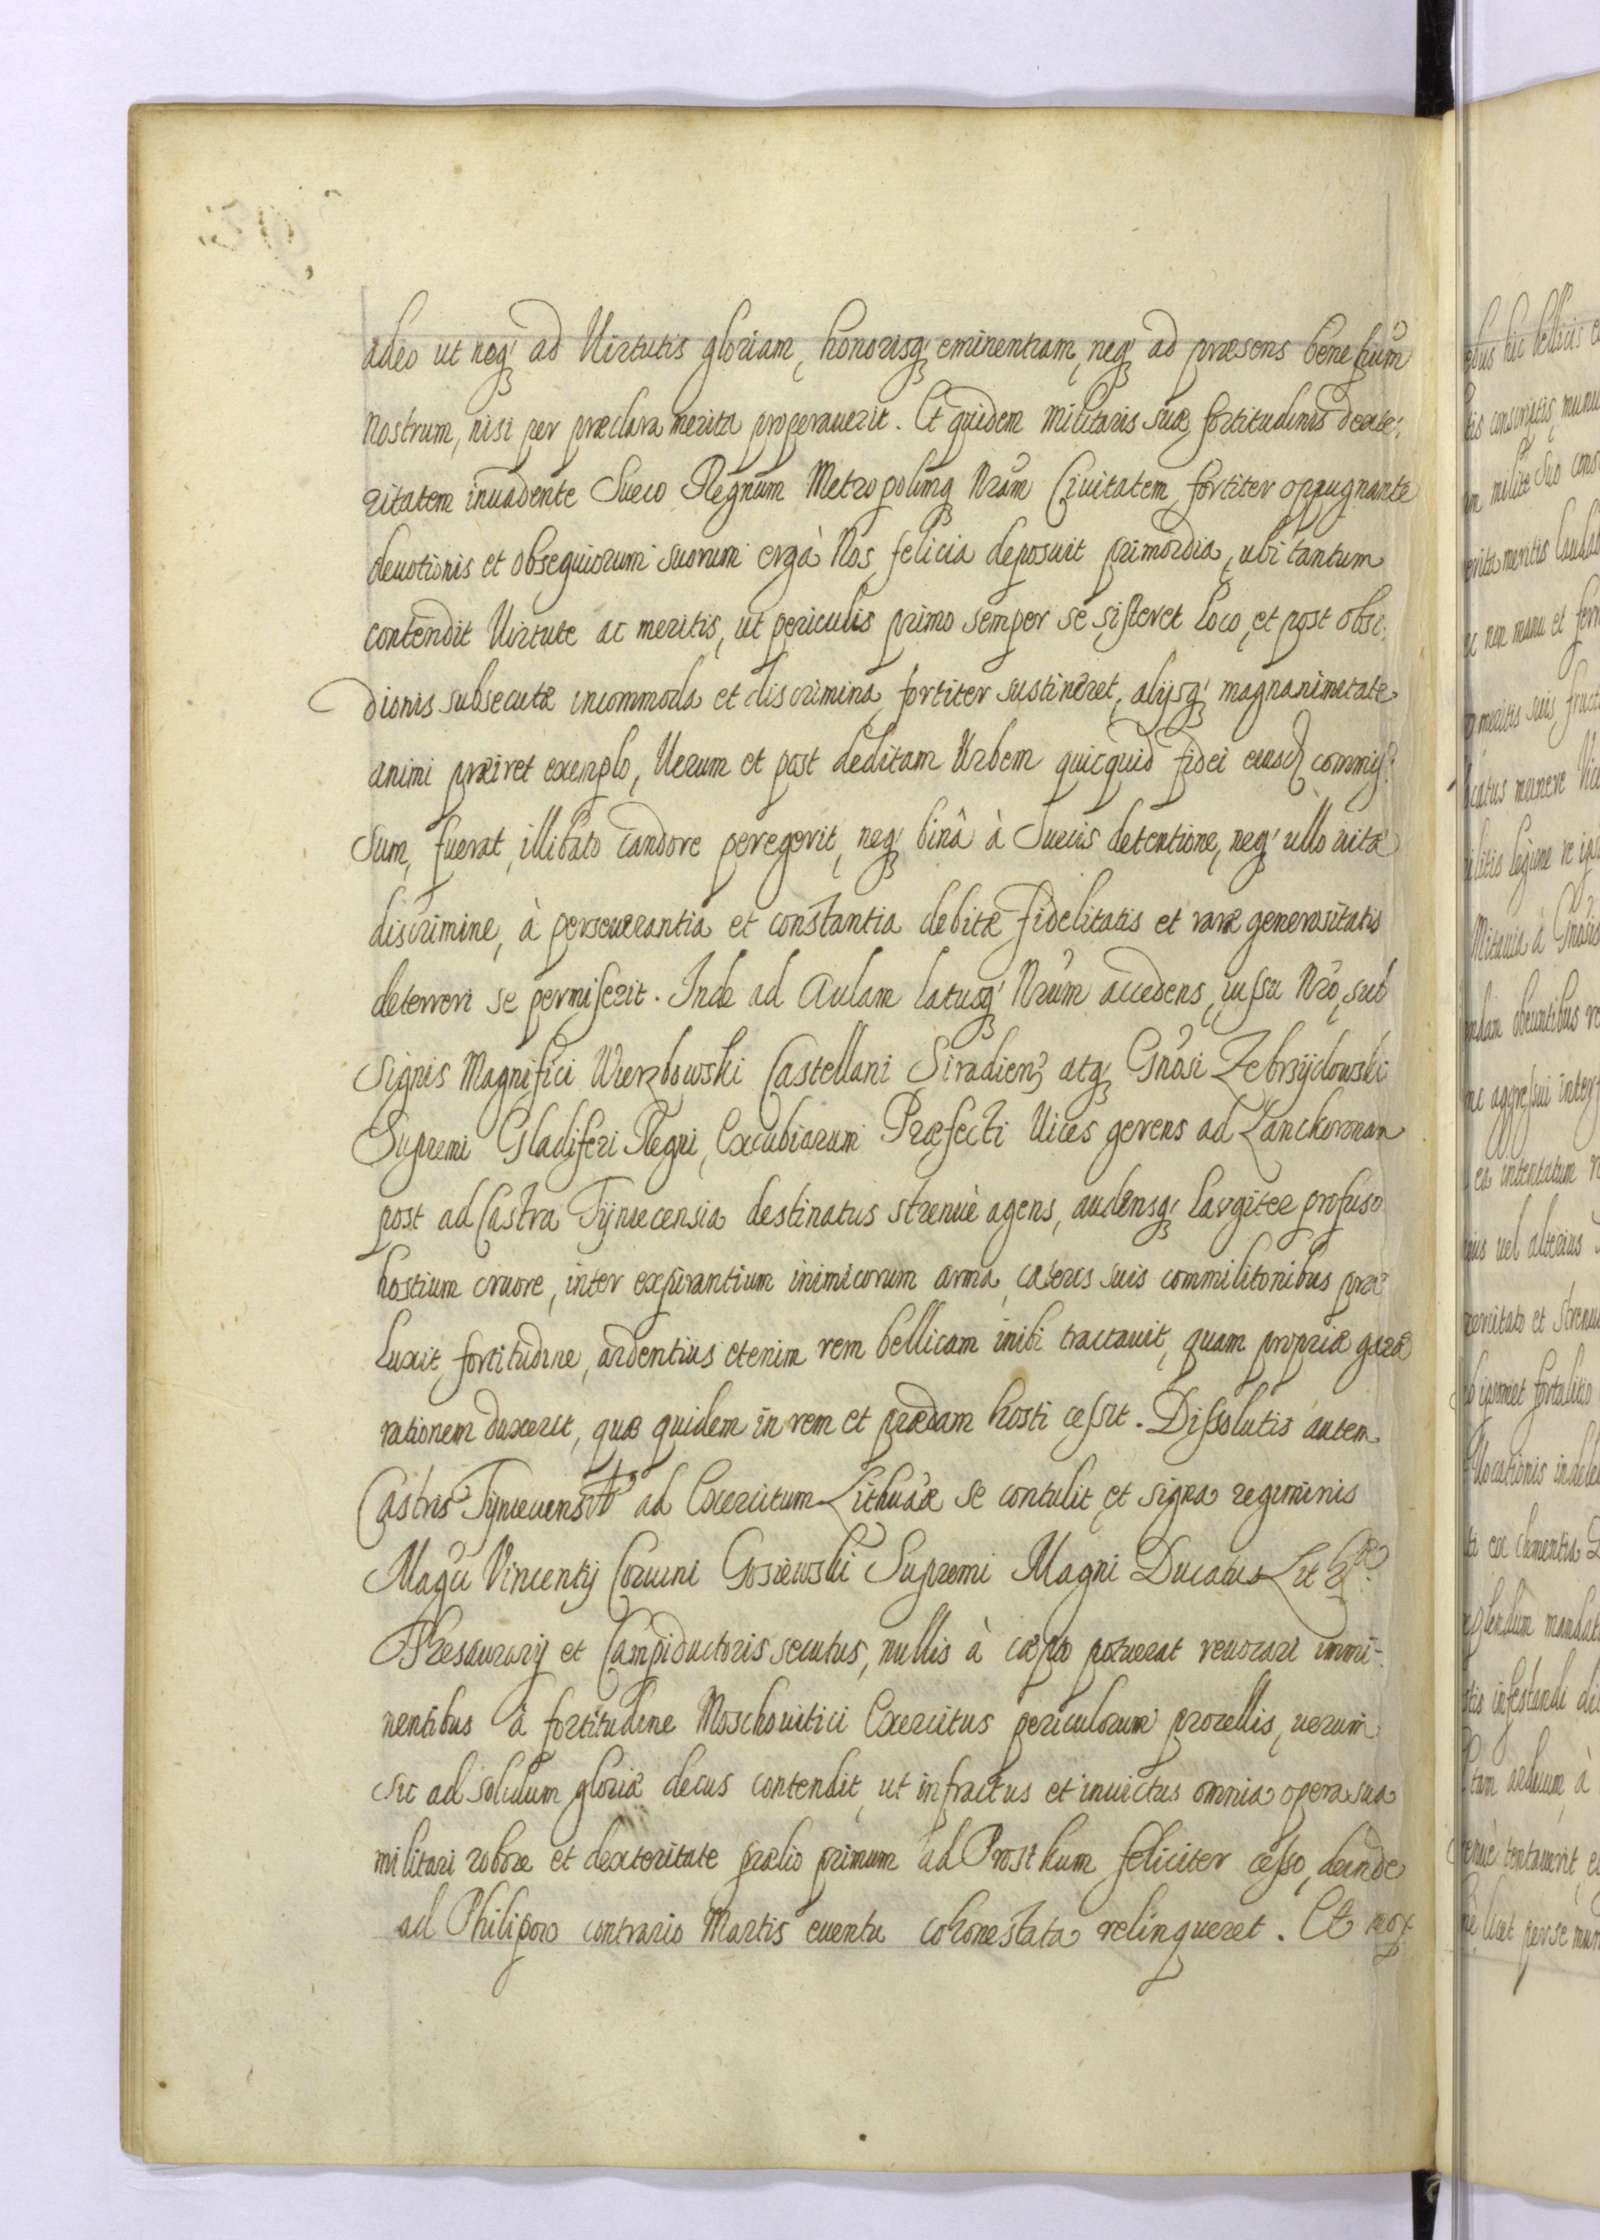 adeo ut neq3 ad Uirtutis gloriam, honorisq3 eminentiam, neq3 ad præsens
nostrum, nisi per præclara merita properauerit. Et quidem militaris suæ fortitudinis dexte:
ritatem inuadente Sueco Regnum Metropolimq3 Nram Ciuitatem fortiter oppugnante
deuotionis et obsequiorum suorum ergà Nos felicia deposuit primordia, ubi tantum
contendit Uirtute ac meritis, ut periculis primo semper se sisteret loco, et post obsi:
dionis subsecutæ incommoda et discrimina fortiter sustineret, alijsq3 magnanimitate
animi præiret exemplo, Uerum et post deditam Urbem quicquid fidei eiusd commis:
sum, fuerat, illibato candore peregerit, neq3 binâ à Suecis detentione, neq3 ullo uitæ
discrimine, à perseuerantia et constantia debitæ fidelitatis et raræ generositatis
deterreri se permiserit. Inde ad Aulam latusq3 Nrum accedens, iussu Nro, sub
signis Magnifici Wierzbowski Castellani Siradien3 atq3 Gnosi Zebrzydowski
Supremi Gladiferi Regni, Excubiarum Præfecti Uices gerens ad Lanckoronam
post ad Castra Tÿniecensia destinatus strenuè agens, audensq3 largiter profuso
hostium cruore, inter expirantium inimicorum arma, cæteris suis commilitonibus præ
luxit fortitudine, ardentius etenim rem bellicam inibi tractauit, quam propriæ gazæ
rationem duxerit, quæ quidem in rem et prædam hosti cessit. Dissolutis autem
Castris ad Exercitum Lithuaæ se contulit et signa regiminis
Magci Vincentij Coruini Gosiewski Supremi Magni Ducatus Lith
Thesaurarij et Campiductoris secutus, nullis à cæpto poterat reuocari immi-
nentibus à fortitudine Moschouitici Exercitus periculorum procellis, uerum
sic ad solidum gloriæ decus contendit, ut infractus et inuictus omnia opera sua
militari robore et dexteritate prælio primum ad Prostkum feliciter cesso, deinde
ad Philipow contrario Martis euentu cohonestata relinqueret. Et mox